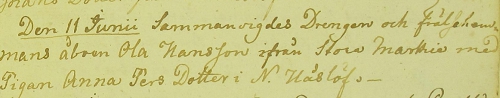 Den 11 Junii Sammanvigdes Drengen och frälsehem-
mans åboen Ola Hansson ifrån Stora Markie med
Pigan Anna Pers Dotter i N. Håslöf. —